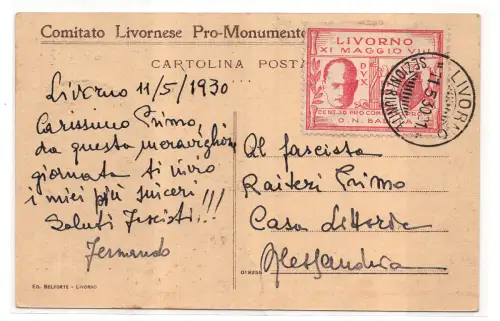 Comitato Livornese Pro-Monumento
CARTOLINA POSTA
LIVORNO
XI MAGGIO VIII
DVX
O.N. BA
LIVORNO
11.5.30
Livorno 11/5/1930
Carissimo Primo
da questa meravigliosa
giornata ti invio
i miei più sinceri
Saluti Fascisti!!!
Fernando
Al fascista
Raiteri Primo
Casa Littoria
Alessandria
ED. BELFORTE - LIVORNO